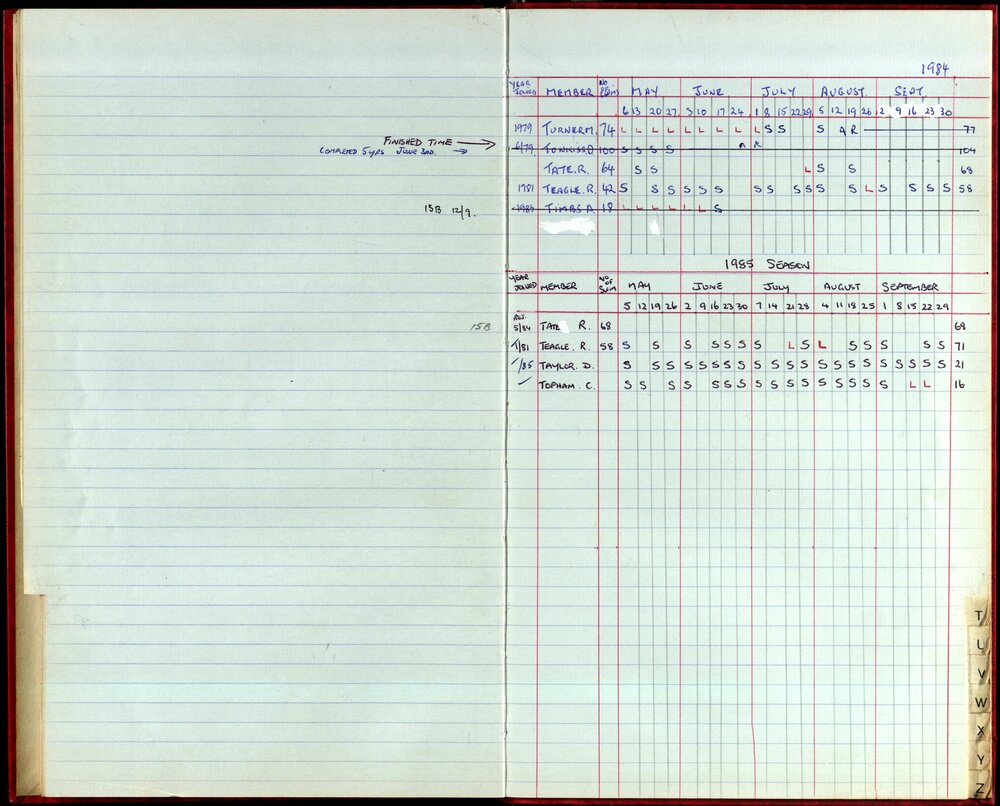 1984
YEAR JOINED MEMBER NO. MAY JUNE JULY AUGUST SEPT.
6 13 20 27 3 10 17 24 1 8 15 22 29 5 12 19 26 2 9 16 23 30
1979 TURNER M. 74 L L L L L L L L L S S S A R 77
FINISHED TIME 6/79 TONKISS D 100 S S S S 104
COMPLETED 5 yrs JUNE 3rd.
TATE. R. 64 S S L S S 68
1981 TEAGLE. R. 42 S S S S S S S S S S S S L S S S S 58
15B 12/9. 1983 TIMBS A. 18 L L L L L L S
1985 SEASON
YEAR JOINED MEMBER NO OF SWIM MAY JUNE JULY AUGUST SEPTEMBER
5 12 19 26 2 9 16 23 30 7 14 21 28 4 11 18 25 1 8 15 22 29
15B 5/84 TATE R. 68 68
1/81 TEAGLE. R. 58 S S S S S S S L S L S S S S S 71
/85 TAYLOR. D. S S S S S S S S S S S S S S S S S S S S S 21
TOPHAM. C. S S S S S S S S S S S S S S S S L L 16
T
U
V
W
X
Y
Z